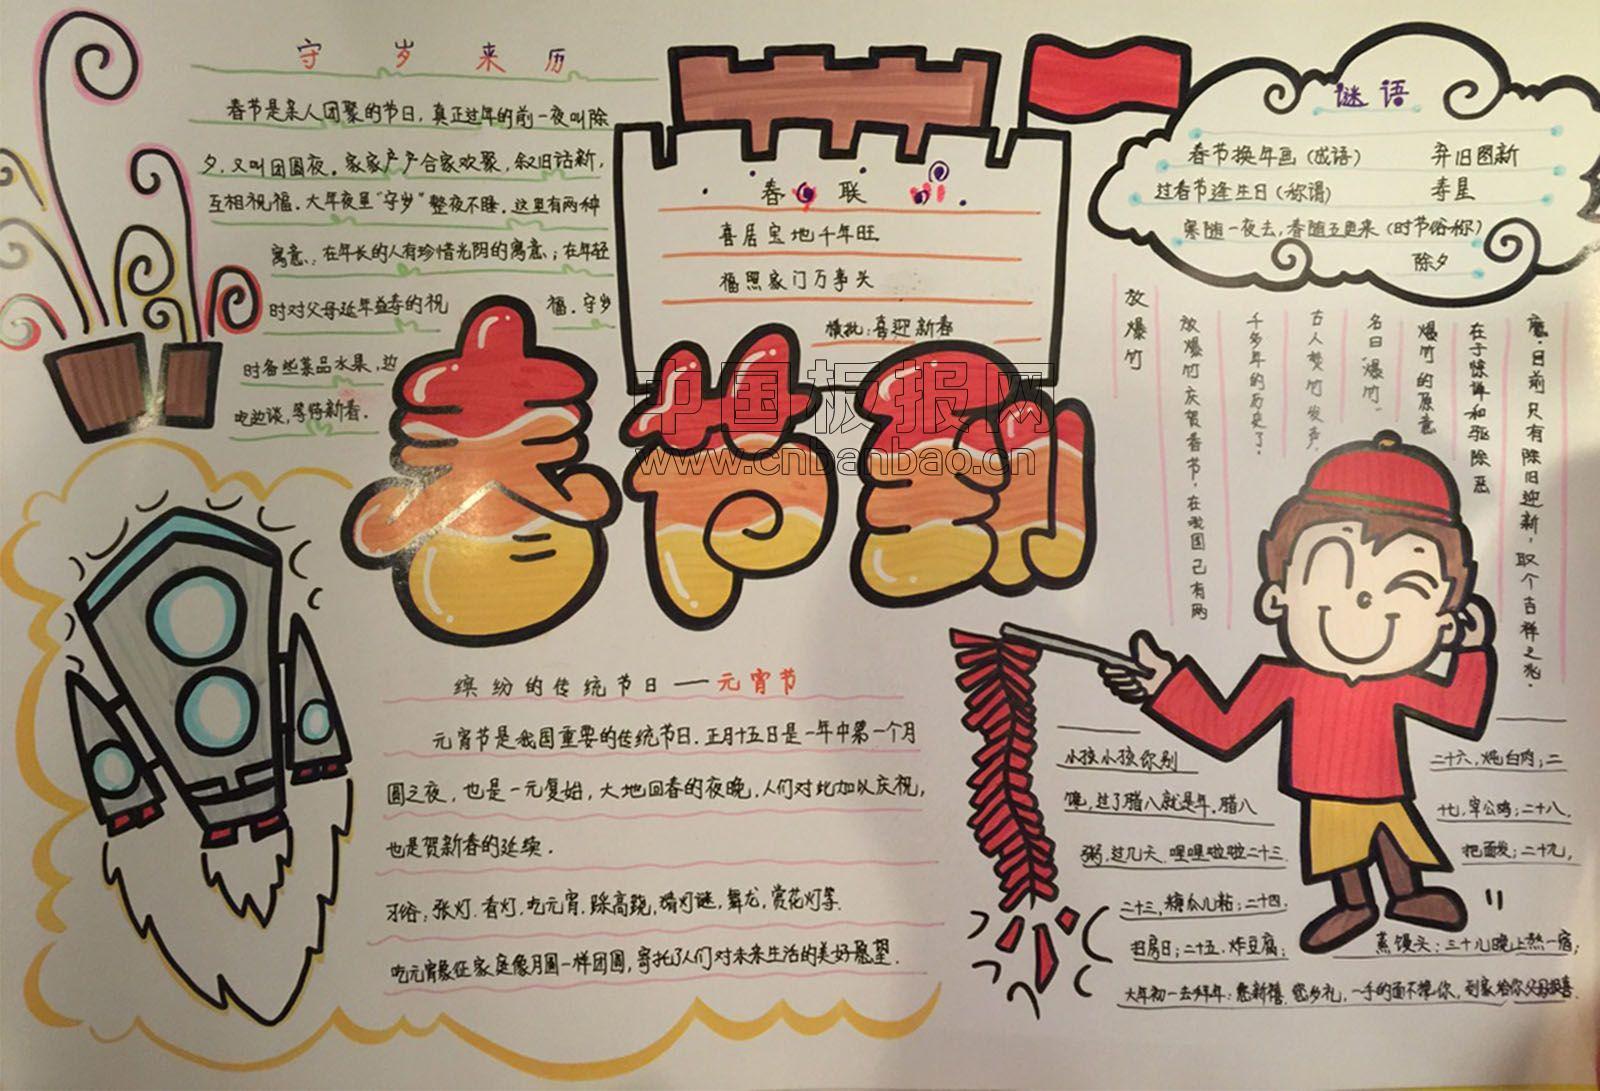 守岁来历
春节是亲人团聚的节日,真正过年的前一夜叫除
夕,又叫团圆夜。家家户户合家欢聚,叙旧话新,
互相祝福。大年夜里"守岁"整夜不睡。这里有两种
寓意:在年长的人有珍惜光阴的寓意;在年轻
时对父母延年益寿的祝 福。守岁
时备些菜品水果,边
吃边谈,等待新春。
春联
喜居宝地千年旺
福照家门万事头
横批:喜迎新春
谜语
春节换年画(成语) 弃旧图新
过春节逢生日(称谓) 寿星
寒随一夜去,春随五更来(时节俗称)
除夕
春节到
中国板报网
www.cnbanbao.cn
放爆竹
放爆竹庆贺春节,在我国已有两
千多年的历史了。
古人焚竹发声,
名曰"爆竹"。
爆竹的原意
在于惊惮和驱除恶
魔,目前只有除旧迎新,取个吉祥之兆。
缤纷的传统节日——元宵节
元宵节是我国重要的传统节日.正月十五日是一年中第一个月
圆之夜,也是一元复始,大地回春的夜晚,人们对此加以庆祝,
也是贺新春的延续.
习俗:张灯.看灯,吃元宵.踩高跷,猜灯谜,舞龙,赏花灯等.
吃元宵象征家庭像月圆一样团圆,寄托了人们对未来生活的美好愿望.
小孩小孩你别
馋,过了腊八就是年。腊八
粥,过几天.哩哩啦啦二十三.
二十三,糖瓜儿粘;二十四.
扫房日;二十五.炸豆腐;
二十六,炖白肉;二
十七,宰公鸡;二十八.
把面发;二十九,
蒸馒头;三十儿晚上熬一宿;
大年初一去拜年:您新禧,您多礼,一手的面不搀你,到家给你父母报喜.